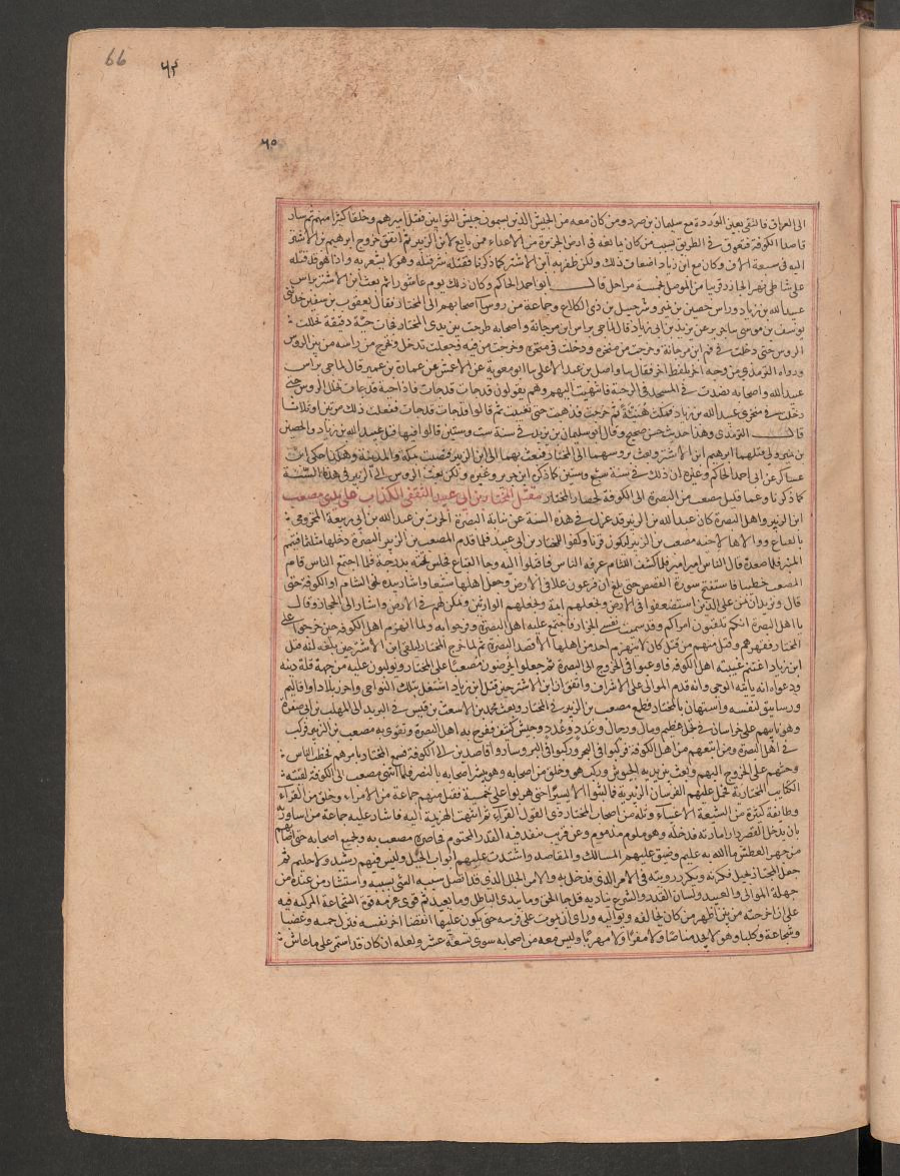 66
٦٤
٦٥
الى العراق فالتقى بعين الوردة مع سليمان بن صرد ومن كان معه من الجيش الذين يسمون جيش التوابين فقتل اميرهم وخلقا كثيرا منهم ثم سار
قاصدا الكوفة فتعوق في الطريق بسبب من كان يمانعه في ارض الجزيرة من الاعداء ممن بايع لابن الزبير ثم اتفق خروج ابرهيم بن الاشتر
اليه في سبعة الاف وكان مع ابن زياد اضعاف ذلك ولكن ظفر به ابن الاشتر كما ذكرنا فقتله شر قتله وهو لا يشعر به واذا هو قد قتله
على شاطئ نهر الخازر قريبا من الموصل بخمسة مراحل قال ابو احمد الحاكم وكان ذلك يوم عاشورا ثم بعث ابن الاشتر براس
عبيد الله بن زياد وراس حصين بن نمير وشرحبيل بن ذي الكلاع وجماعة من روسا اصحابهم الى المختار فقال يعقوب بن سفين حدثنى
يوسف بن موسى بن جرير عن يزيد بن ابي زياد قال لما جي براس ابن مرجانة واصحابه طرحت بين يدى المختار فجات حية دقيقة تخللت
الروس حتى دخلت في فم ابن مرجانة وخرجت من منخره ودخلت في منخره وخرجت من فيه وجعلت تدخل وتخرج من راسه من بين الروس
ورواه الترمذي من وجه اخر بلفظ اخر فقال ما واصل بن عبد الاعلى ما ابو معوية عن الاعمش عن عمارة بن عمير قال لما جي براس
عبيد الله واصحابه نضدت في المسجد في الرحبة فانتهيت اليهم وهم يقولون قد جات قد جات فاذا حية قد جات تخلل الروس حتى
دخلت في منخري عبيد الله بن زياد فمكثت هنيئة ثم خرجت فذهبت حتى تغيبت ثم قالوا قد جات قد جات ففعلت ذلك مرتين او ثلاثا
قال الترمذي وهذا حديث حسن صحيح وقال ابو سليمان بن زبر في سنة ست وستين قالوا فيها قتل عبيد الله بن زياد والحصين
بن نمير ولي قتلهما ابرهيم ابن الاشتر وبعث بروسهما الى المختار فبعث بهما الى ابن الزبير فنصبت بمكة والمدينة وهكذا حكى ابن
عساكر عن ابى احمد الحاكم وغيره ان ذلك في سنة ست وستين كما ذكره ابن جرير وغيره ولكن بعث الروس الى ابن الزبير في هذه السنة
كما ذكرنا وعما قليل مصعب من البصرة الى الكوفة لحصار المختار مقتل المختار بن ابي عبيد الثقفي الكذاب على يدي مصعب
ابن الزبير واهل البصرة كان عبد الله بن الزبير قد عزل في هذه السنة عن نيابة البصرة الحرث بن عبد الله بن ابي ربيعة المخزومي
بالقباع وولاها لاخيه مصعب بن الزبير ليكون قرنا وكفوا للمختار بن ابي عبيد فلما قدم المصعب بن الزبير البصرة دخلها متلثما فتيمم
المنبر فلما صعده قال الناس امير امير فلما كشف اللثام عرفه الناس فاقبلوا اليه وجا القباع فجلس تحته بدرجة فلما اجتمع الناس قام
المصعب خطيبا فاستفتح سورة القصص حتى بلغ ان فرعون علا في الارض وجعل اهلها شيعا واشار بيده نحو الشام او الكوفة حتى
قال ونريد ان نمن على الذين استضعفوا في الارض ونجعلهم ايمة ونجعلهم الوارثين ونمكن لهم في الارض واشار الى الحجاز وقال
يا اهل البصرة انكم تلقبون امراكم وقد سميت نفسي الجزار فاجتمع عليه اهل البصرة وفرحوا به ولما انهزم اهل الكوفة حين خرجوا على
المختار فقهرهم وقتل منهم من قتل كان لا ينهزم احد من اهلها الا قصد البصرة ثم لما خرج المختار ليلتقى ابن الاشتر حين بلغه انه قتل
ابن زياد اغتنم غيبته اهل الكوفة فاوعبوا في الخروج الى البصرة ثم جعلوا يحرضون مصعبا على المختار ويولبون عليه من جهة قلة دينه
ودعواه انه ياتيه الوحى وانه قدم الموالى على الاشراف واتفق ان ابن الاشتر حين قتل ابن زياد اشتغل بتلك النواحى واحرز بلادا واقاليم
ورساتيق لنفسه واستهان بالمختار فطمع مصعب بن الزبير في المختار وبعث محمد بن الاشعث بن قيس في البريد الى المهلب بن ابي صفرة
وهو نايبهم على خراسان في تجمل عظيم ومال ورجال وعدد وعدد وجيش كثيف ففرح به اهل البصرة وتقوى به مصعب بن الزبير فركب
في اهل البصرة ومن اتبعهم من اهل الكوفة فركبوا في البحر وركبوا في البر وسار وا قاصدين الى الكوفة فسمع المختار بامرهم فخطب الناس
وحثهم على الخروج اليهم وبعث بين يديه الجيوش وركب هو وخلق من اصحابه وهو يبشر اصحابه بالنصر فلما انتهى مصعب الى الكوفة لقيته
الكتايب المختارية فحمل عليهم الفرسان الزبيرية فما لبثوا الا يسيرا حتى هربوا على حمية فقتل منهم جماعة من الامراء وخلق من القراء
وطايفة كثيرة من الشيعة الاغبياء وثلة من اصحاب المختار ذى القول القراء ثم انتهت الهزيمة اليه فاشار عليه جماعة من اساورته
بان يدخل القصر دار امارته فدخله وهو ملوم مذموم وعن قريب سينفد فيه القدر المحتوم فحاصره مصعب به وجميع اصحابه حتى اصابهم
من جهد العطش ما الله به عليم وضيق عليهم المسالك والمقاصد واشتدت عليهم ابواب الحيل وليس فيهم رشيد ولا حليم ثم
جعل المختار يجيل فكرته ويكرر رويته في الامر الذى قد حل به والامر الجلل الذى قد اتصل سببه السئ بسببه واستشار من عنده من
جهلة الموالى والعبيد ولسان القدر والشرع يناديه قل جا الحق وما يبدى الباطل وما يعيد ثم قوى عزمه قوة الشجاعة المركبة فيه
على ان اخرجته من بين اظهر من كان يخالفه ويواليه وراى ان يموت على فرسه حتى يكون عليها انقضا اخر نفسه فنزل حمية وغضبا
وشجاعة وكلبا وهو لا يجد مناصا ولا مفرا ولا مهربا وليس معه من اصحابه سوى تسعة عشر ولعله ان كان قد استمر على ما عاش